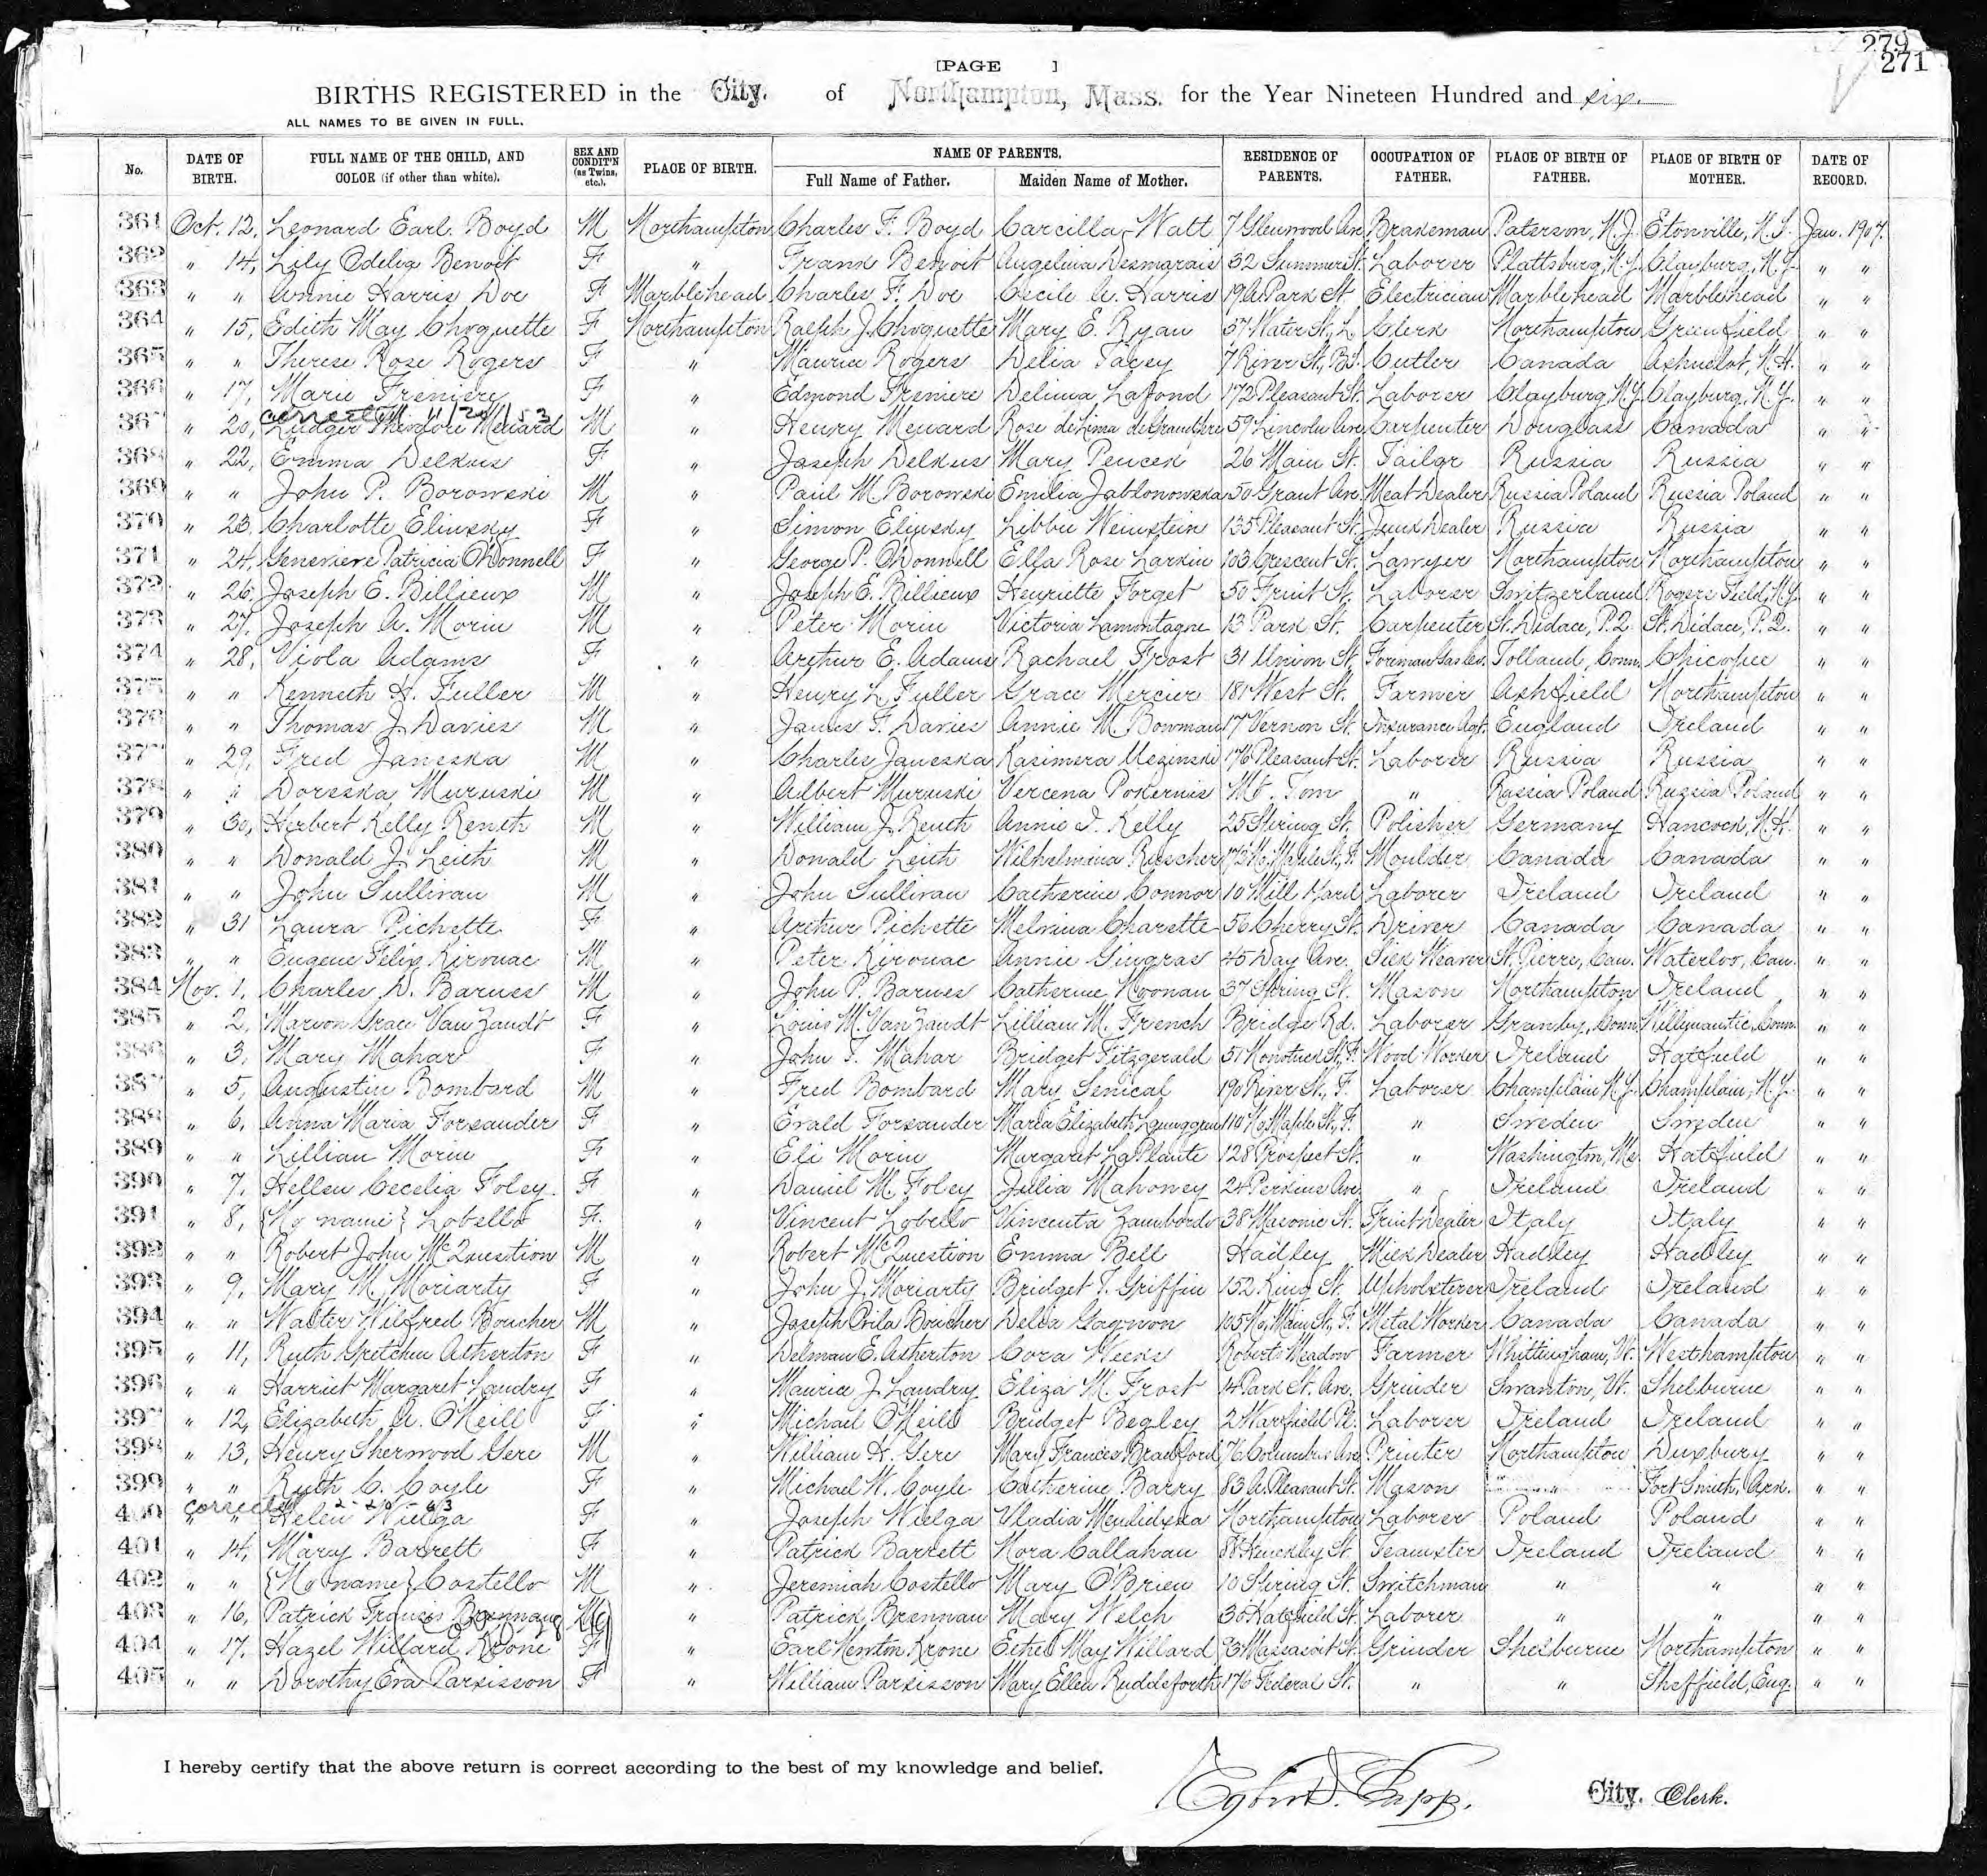 279
271
[PAGE ]
BIRTHS REGISTERED in the City. of Northampton, Mass. for the Year Nineteen Hundred and six.
ALL NAMES TO BE GIVEN IN FULL.
No. DATE OF BIRTH. FULL NAME OF THE CHILD, AND COLOR (if other than white). SEX AND CONDIT'N (as Twins, etc.). PLACE OF BIRTH. NAME OF PARENTS. Full Name of Father. Maiden Name of Mother. RESIDENCE OF PARENTS. OCCUPATION OF FATHER. PLACE OF BIRTH OF FATHER. PLACE OF BIRTH OF MOTHER. DATE OF RECORD.
361 Oct. 12, Leonard Earl Boyd M Northampton Charles F. Boyd Carcilla Watt 7 Glenwood Ave Brakeman Paterson, N.J. Etonville, N.S. Jan. 1907.
362 " 14, Lily Odelia Benoit F " Frank Benoit Angelina Desmarais 32 Summer St. Laborer Plattsburg, N.Y. Clayburg, N.Y. " "
363 " " Annie Harris Doe F Marblehead Charles F. Doe Cecile A. Harris 19A Park St. Electrician Marblehead Marblehead " "
364 " 15, Edith May Choquette F Northampton Ralph J. Choquette Mary E. Ryan 57 Water St., L. Clerk Northampton Greenfield " "
365 " " Therese Rose Rogers F " Maurice Rogers Delia Tacey 7 River St., B.S. Cutler Canada Ashuelot, N.H. " "
366 " 17, Marie Freniere F " Edmond Freniere Delima Lafond 172 Pleasant St. Laborer Clayburg N.Y. Clayburg, N.Y. " "
corrected 11/20/53
367 " 20, Ludger Theodore Menard M " Henry Menard Rose deLima 59 Lincoln Ave Carpenter Douglass Canada " "
368 " 22, Emma Delkus F " Joseph Delkus Mary Pencek 26 Main St. Tailor Russia Russia " "
369 " " John P. Borowski M " Paul M. Borowski Emilia Jablonowska 50 Grant Ave. Meat Dealer Russia Poland Russia Poland " "
370 " 23. Charlotte Elinsky F " Simon Elinsky Libbie Weinstein 135 Pleasant St. Junk Dealer Russia Russia " "
371 " 24, Genevieve Patricia O'Donnell F " George P. O'Donnell Ella Rose Larkin 103 Crescent St. Lawyer Northampton Northampton " "
372 " 26, Joseph E. Billieux M " Joseph E. Billieux Henriette Forget 50 Fruit St. Laborer Switzerland Rogers Field, N.Y. " "
373 " 27, Joseph A. Morin M " Peter Morin Victoria Lamontagne 13 Park St. Carpenter St. Didace, P.Q. St. Didace, P.Q. " "
374 " 28, Viola Adams F " Arthur E. Adams Rachael Frost 31 Union St. Foreman Gas Co. Tolland, Conn. Chicopee " "
375 " " Kenneth H. Fuller M " Henry L. Fuller Grace Mercier 181 West St. Farmer Ashfield Northampton " "
376 " " Thomas J. Davies M " James F. Davies Annie M. Bowman 17 Vernon St. Insurance Agt. England Ireland " "
377 " 29, Fred Janeska M " Charles Janeska Kasimera Mezinski 176 Pleasant St. Laborer Russia Russia " "
378 " " Doreska Muruski M " Albert Muruski Vercena Pokernis Mt. Tom " Russia Poland Russia Poland " "
379 " 30, Herbert Kelly Reuth M " William J. Reuth Annie I. Kelly 25 Spring St. Polisher Germany Hancock, N.H. " "
380 " " Donald J. Leith M " Donald Leith Wilhelmina Ruscher 173 No. Maple St., F. Moulder Canada Canada " "
381 " " John Sullivan M " John Sullivan Catherine Connor 10 Mill Yard Laborer Ireland Ireland " "
382 " 31 Laura Pichette F " Arthur Pichette Melvina Charette 56 Cherry St. Driver Canada Canada " "
383 " " Eugene Felix Kirouac M " Peter Kirouac Annie Gingras 45 Day Ave. Silk Weaver St. Pierre, Can. Waterloo, Can. " "
384 Nov. 1, Charles D. Barnes M " John P. Barnes Catherine Noonan 37 Spring St. Mason Northampton Ireland " "
385 " 2, Marion Grace VanZandt F " Louis M. VanZandt Lillian M. French Bridge Rd. Laborer Granby, Conn. Willymantic, Conn. " "
386 " 3, Mary Mahar F " John T. Mahar Bridget Fitzgerald 51 Nonotuck St., F. Wood Worker Ireland Hatfield " "
387 " 5, Augustin Bombard M " Fred Bombard Mary Senical 190 River St., F. Laborer Champlain N.Y. Champlain, N.Y. " "
388 " 6, Anna Maria Forsander F " Evald Forsander Maria Elizabeth 110 No. Maple St., F. " Sweden Sweden " "
389 " " Lillian Morin F " Eli Morin Margaret LaPlante 128 Prospect St. " Washington, Me. Hatfield " "
390 " 7, Hellen Cecelia Foley F " Daniel M. Foley Julia Mahoney 24 Perkins Ave. " Ireland Ireland " "
391 " 8, {No name} Lobello F. " Vincent Lobello Vincenta Zambordo 38 Masonic St. Fruit Dealer Italy Italy " "
392 " " Robert John McQuestion M " Robert McQuestion Emma Bell Hadley Milk Dealer Hadley Hadley " "
393 " 9, Mary M. Moriarty F " John J. Moriarty Bridget T. Griffin 152 King St. Upholsterer Ireland Ireland " "
394 " " Walter Wilfred Boucher M " Joseph Ovila Boucher Delia Gagnon 105 No. Main St., F. Metal Worker Canada Canada " "
395 " 11, Ruth Gretchen Atherton F " Delman E. Atherton Cora Weeks Roberts Meadow Farmer Whittingham, Vt. Westhampton " "
396 " " Harriet Margaret Landry F " Maurice J. Landry Eliza M. Frost 14 Park St. Ave. Grinder Swanton, Vt. Shelburne " "
397 " 12, Elizabeth A. O'Neill F " Michael O'Neill Bridget Begley 2 Warfield Pl. Laborer Ireland Ireland " "
398 " 13, Henry Sherwood Gere M " William H. Gere Mary Frances Bradford 76 Columbus Ave Printer Northampton Duxbury " "
399 " " Ruth C. Coyle F " Michael W. Coyle Catherine Barry 83 A. Pleasant St. Mason " Fort Smith, Ark. " "
corrected 2-20-63
400 " " Helen Wielga F " Joseph Wielga Vladia Northampton Laborer Poland Poland " "
401 " 14, Mary Barrett F " Patrick Barrett Nora Callahan 88 Hinckley St. Teamster Ireland Ireland " "
402 " " {No name} Costello M " Jeremiah Costello Mary O'Brien 10 Spring St. Switchman " " " "
403 " 16, Patrick Francis Brennan M " Patrick Brennan Mary Welch 30 Hatfield St. Laborer " " " "
404 " 17, Hazel Willard Krone F " Earl Newton Krone Ethel May Willard 93 Massasoit St. Grinder Shelburne Northampton " "
405 " " Dorothy Eva Parkisson F " William Parkisson Mary Ellen Ruddlsforth 176 Federal St. " " Sheffield, Eng. " "
I hereby certify that the above return is correct according to the best of my knowledge and belief.
Egbert I. Clapp. City. Clerk.